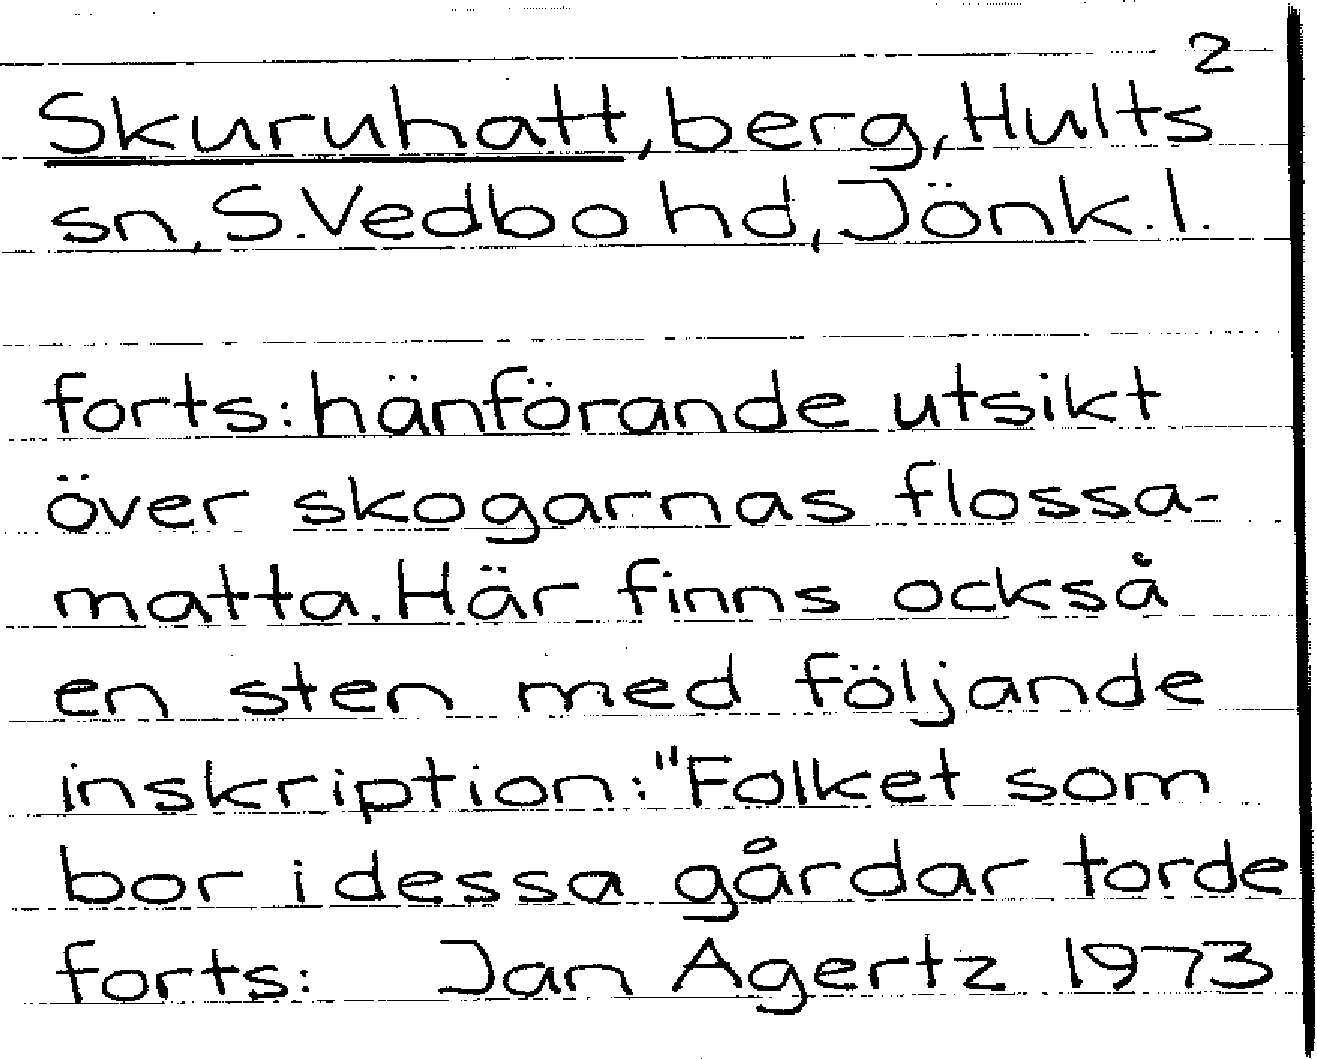 2
Skuruhatt, berg, Hults
sn, S. Vedbo hd, Jönk. l.
forts: hänförande utsikt
över skogarnas flossa-
matta. Här finns också
en sten med följande
inskription: "Folket som
bor i dessa gårdar torde
forts: Jan Agertz 1973